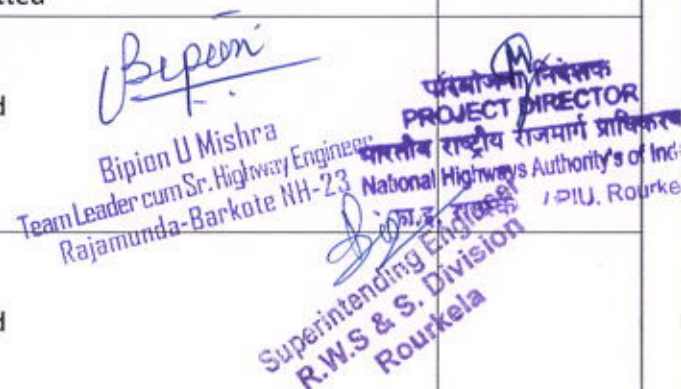 Bipion
Bipion U Mishra
Team Leader cum Sr. Highway Engineer
Rajamunda-Barkote NH-23
परियोजना निदेशक
PROJECT DIRECTOR
भारतीय राष्ट्रीय राजमार्ग प्राधिकरण
National Highways Authority's of Ind
PIU, Rourke
Superintending Engineer
R.W.S & S. Division
Rourkela